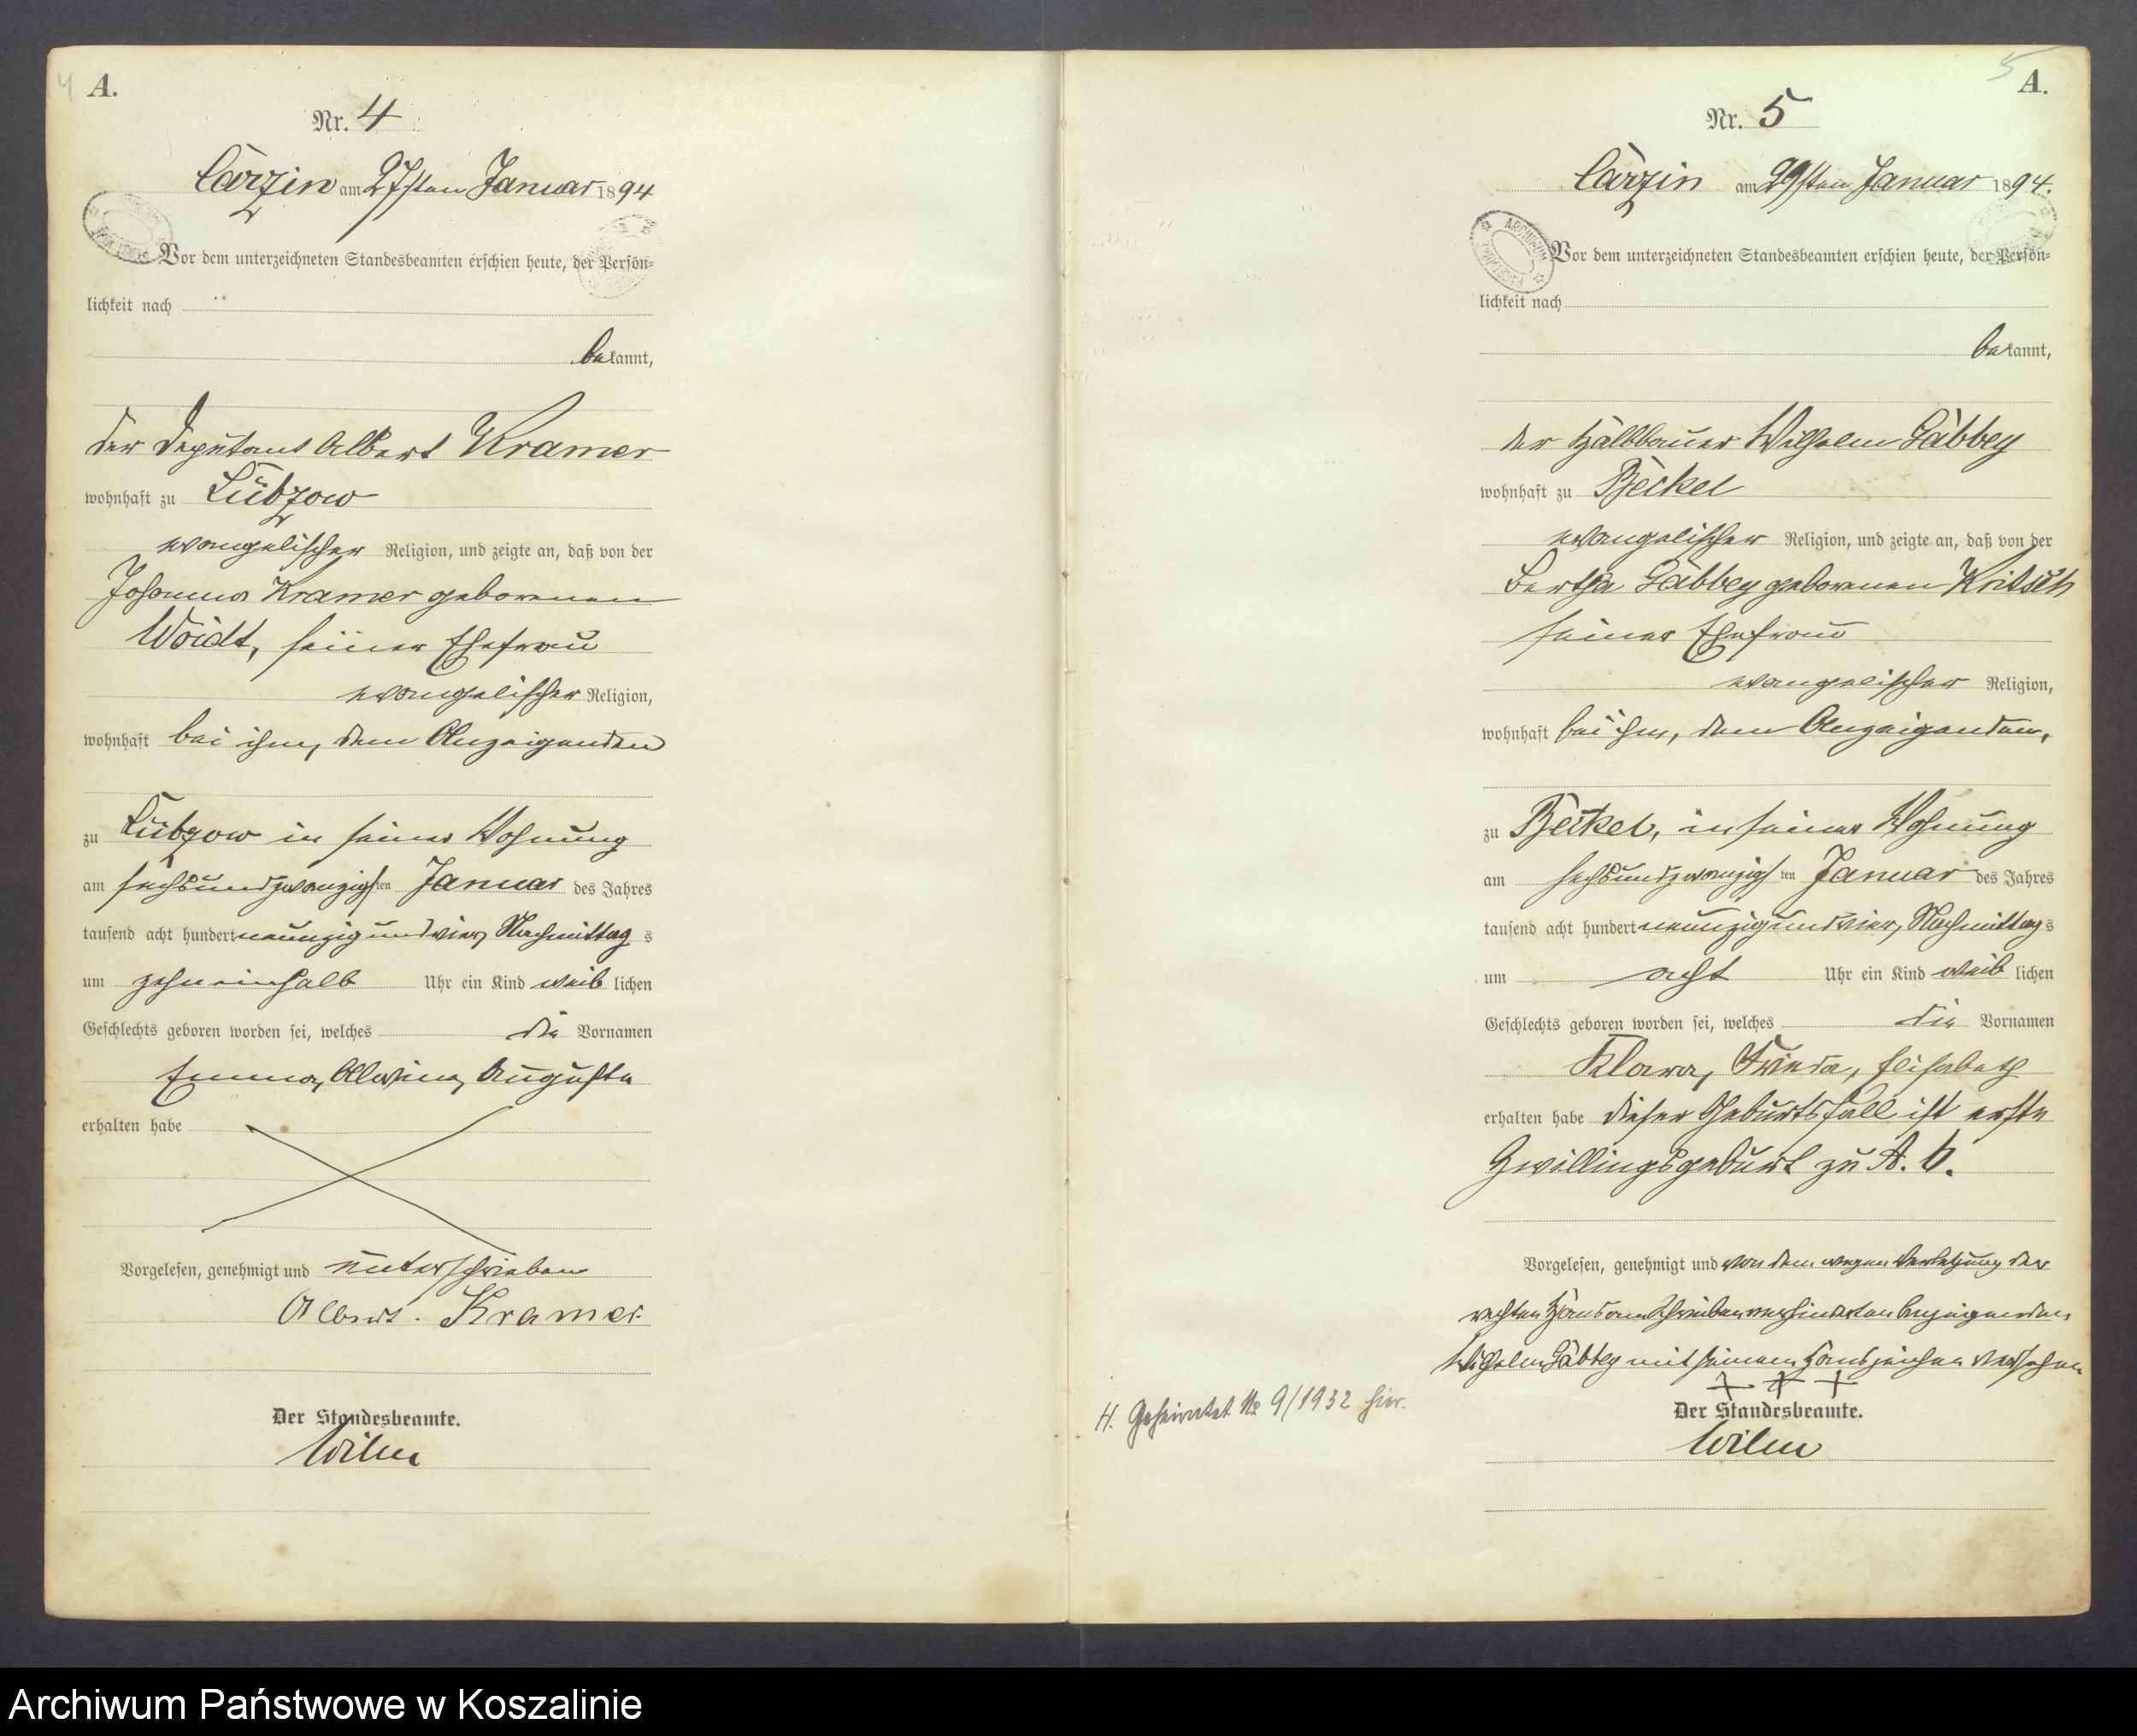 4
A.
Nr. 4
Carzin am 27sten Januar 1894
Vor dem unterzeichneten Standesbeamten erschien heute, der Persön=
lichkeit nach
bekannt,
der Deputant Albert Kramer
wohnhaft zu Lübzow
evangelischer Religion, und zeigte an, daß von der
Johanna Kramer geborenen
Woidt, seiner Ehefrau
evangelischer Religion,
wohnhaft bei ihm, dem Anzeigenden
zu Lübzow in seiner Wohnung
am sechsundzwanzigsten Januar des Jahres
tausend acht hundert neunzig und vier, Nachmittags
um zehneinhalb Uhr ein Kind weiblichen
Geschlechts geboren worden sei, welches die Vornamen
Emma, Alwine, Auguste
erhalten habe
Vorgelesen, genehmigt und unterschrieben
Albert. Kramer.
Der Standesbeamte.
Wilm
5
A.
Nr. 5
Carzin am 29sten Januar 1894.
ARCHIWUM
Vor dem unterzeichneten Standesbeamten erschien heute, der Persön=
lichkeit nach
bekannt,
der Halbbauer Wilhelm Gäbbey
wohnhaft zu Beckel
evangelischer Religion, und zeigte an, daß von der
Bertha Gäbbey geborenen Kritsch
seiner Ehefrau
evangelischer Religion,
wohnhaft bei ihm, dem Anzeigenden,
zu Beckel, in seiner Wohnung
am sechsundzwanzigsten Januar des Jahres
tausend acht hundert neunzig und vier, Nachmittags
um acht Uhr ein Kind weiblichen
Geschlechts geboren worden sei, welches die Vornamen
Klara, Frieda, Elisabeth
erhalten habe dieser Geburtsfall ist erste
Zwillingsgeburt zu A. 6.
Vorgelesen, genehmigt und von dem wegen Verletzung der
rechten Hand am Schreiben verhinderten Anzeigenden
Wilhelm Gäbbey mit seinem Handzeichen versehen
+ + +
Der Standesbeamte.
Wilm
H. Geheiratet № 9/1932 hier.
Archiwum Państwowe w Koszalinie